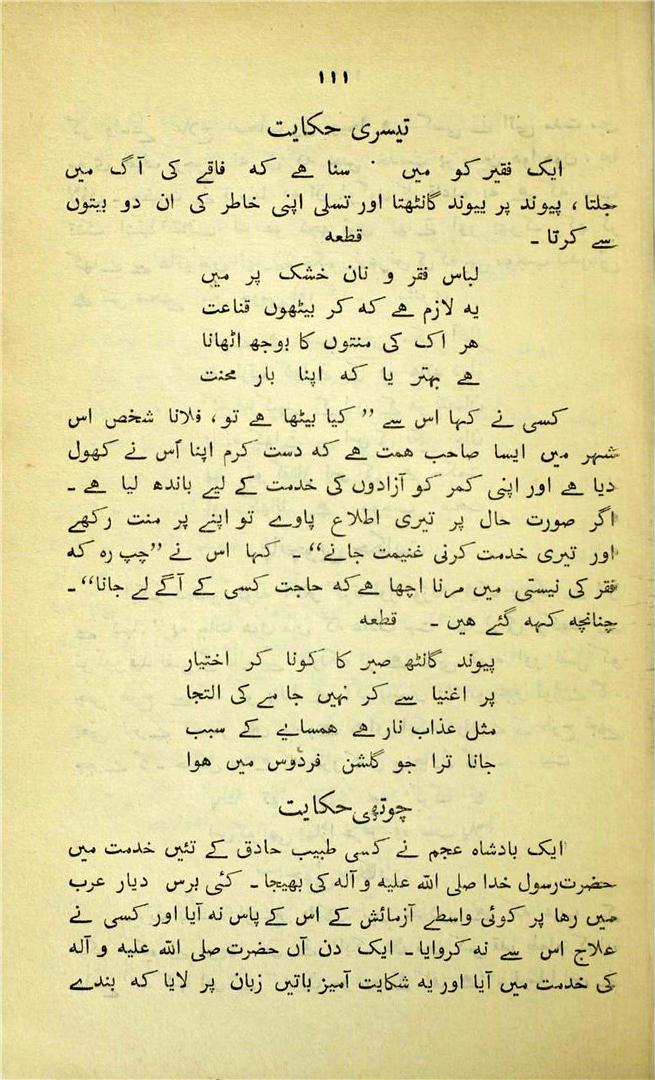 ۱۱۱
تیسری حکایت
ایک فقیر کو میں سنا ہے کہ فاقے کی آگ میں
جلتا ، پیوند پر پیوند گانٹھتا اور تسلی اپنی خاطر کی ان دو بیتوں
سے کرتا ۔ قطعہ
لباس فقر و نان خشک پر میں
یہ لازم ہے کہ کر بیٹھوں قناعت
ہر اک کی منتوں کا بوجھ اٹھانا
ہے بہتر یا کہ اپنا بار محنت
کسی نے کہا اس سے ”کیا بیٹھا ہے تو ، فلانا شخص اس
شہر میں ایسا صاحب ہمت ہے کہ دست کرم اپنا اُس نے کھول
دیا ہے اور اپنی کمر کو آزادوں کی خدمت کے لیے باندھ لیا ہے ۔
اگر صورت حال پر تیری اطلاع پاوے تو اپنے پر منت رکھے
اور تیری خدمت کرنی غنیمت جانے“ ۔ کہا اس نے ”چپ رہ کہ
فقر کی نیستی میں مرنا اچھا ہے کہ حاجت کسی کے آگے لے جانا“ ۔
چنانچہ کہہ گئے ہیں ۔ قطعہ
پیوند گانٹھ صبر کا کونا کر اختیار
پر اغنیا سے کر نہیں جامے کی التجا
مثل عذاب نار ہے ہمسایے کے سبب
جانا ترا جو گلشن فردوس میں ہوا
چوتھی حکایت
ایک بادشاہ عجم نے کسی طبیب حاذق کے تئیں خدمت میں
حضرت رسول خدا صلی اللہ علیہ و آلہ کی بھیجا ۔ کئی برس دیار عرب
میں رہا پر کوئی واسطے آزمائش کے اس کے پاس نہ آیا اور کسی نے
علاج اس سے نہ کروایا ۔ ایک دن آں حضرت صلی اللہ علیہ و آلہ
کی خدمت میں آیا اور یہ شکایت آمیز باتیں زبان پر لایا کہ بندے